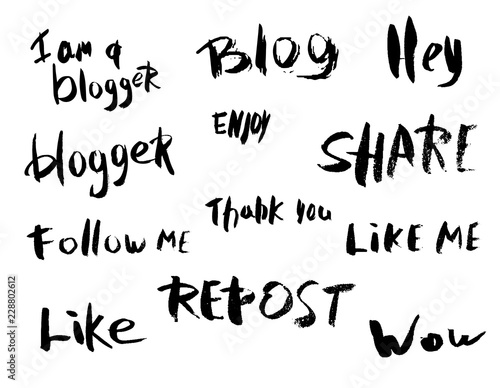 I am a
blogger
Blog
Hey
ENJOY
blogger
SHARE
Thank you
Follow ME
LIKE ME
REPOST
Like
Wow
Adobe Stock | #228802612